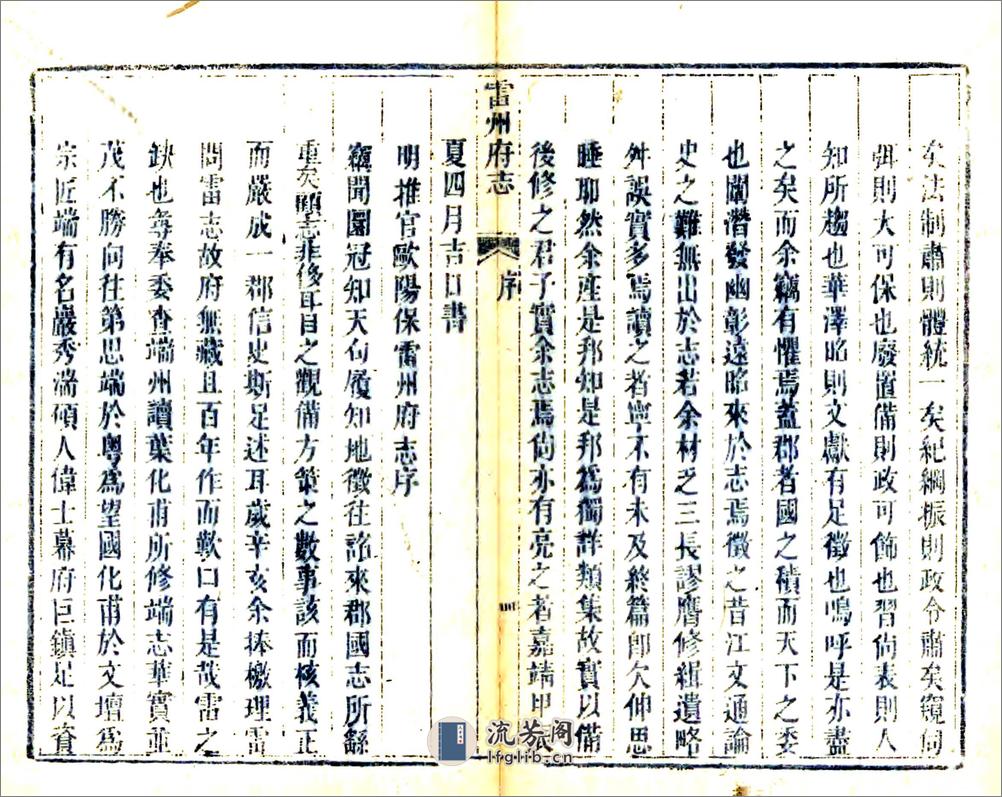 矣法制肅則體統一矣紀綱振則政令肅矣窺伺
弭則大可保也廢置備則政可飾也習尚表則人
知所趨也華澤昭則文獻有足徵也嗚呼是亦盡
之矣而余竊有懼焉蓋郡者國之積而天下之委
也闡潛發幽彰遠昭來於志焉徵之昔江文通論
史之難無出於志若余材乏三長謬膺修緝遺略
舛誤實多焉讀之者寧不有未及終篇卽欠伸思
睡耶然余座是邦知是邦為獨詳類集故實以備
後修之君子實余志焉尚亦有亮之者嘉靖甲辰
雷州府志 序
夏四月吉日書
明推官歐陽保雷州府志序
竊聞圜冠知天句屨知地徵往詒來郡國志所繇
重矣顧志非侈耳目之觀備方策之數事該而核義正
而嚴成一郡信史斯足述耳歲辛亥余捧檄理雷
問雷志故府無藏且百年作而歎曰有是哉雷之
缺也每奉委查端州讀葉化甫所修端志華實並
茂不勝向往第思端於粵為望國化甫於文壇為
宗匠端有名巖秀湍碩人偉士幕府巨鎮足以資
流芳阁
lfglib.cn